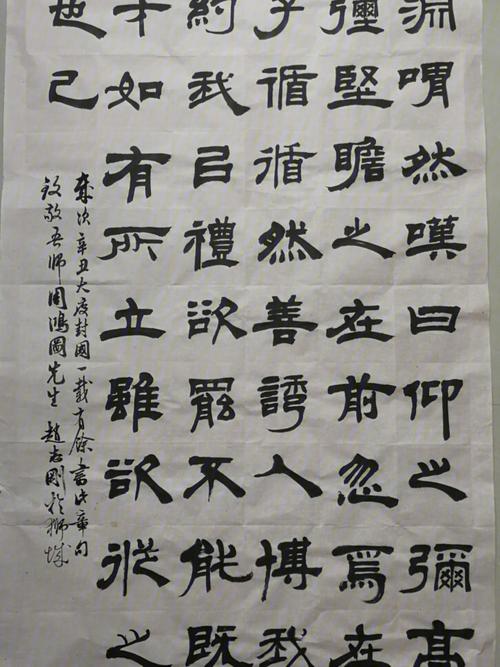 淵喟然嘆曰仰之彌高
彌堅瞻之在前忽焉在
子循循然善誘人博我
約我㠯禮欲罷不能既
才如有所立雖欲從之
也已
歲次辛丑大疫封國一載有餘書此章句
致敬吾師周鴻圖先生 趙志剛於獅城